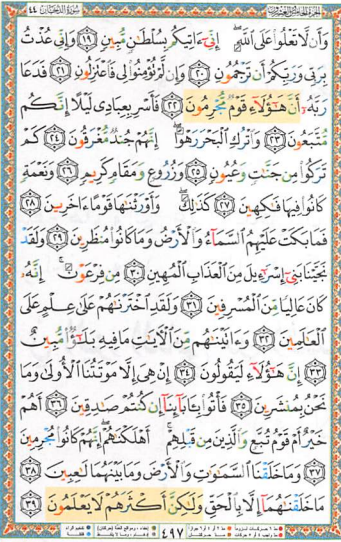 الجزء الخامس والعشرون ٤٤ سورة الدخان
وَأَن لَّا تَعْلُوا۟ عَلَى ٱللَّهِ ۖ إِنِّىٓ ءَاتِيكُم بِسُلْطَـٰنٍ مُّبِينٍ ١٩ وَإِنِّى عُذْتُ
بِرَبِّى وَرَبِّكُمْ أَن تَرْجُمُونِ ٢٠ وَإِن لَّمْ تُؤْمِنُوا۟ لِى فَٱعْتَزِلُونِ ٢١ فَدَعَا
رَبَّهُۥٓ أَنَّ هَـٰٓؤُلَآءِ قَوْمٌ مُّجْرِمُونَ ٢٢ فَأَسْرِ بِعِبَادِى لَيْلًا إِنَّكُم
مُّتَّبَعُونَ ٢٣ وَٱتْرُكِ ٱلْبَحْرَ رَهْوًا ۖ إِنَّهُمْ جُندٌ مُّغْرَقُونَ ٢٤ كَمْ
تَرَكُوا۟ مِن جَنَّـٰتٍ وَعُيُونٍ ٢٥ وَزُرُوعٍ وَمَقَامٍ كَرِيمٍ ٢٦ وَنَعْمَةٍ
كَانُوا۟ فِيهَا فَـٰكِهِينَ ٢٧ كَذَٰلِكَ ۖ وَأَوْرَثْنَـٰهَا قَوْمًا ءَاخَرِينَ ٢٨
فَمَا بَكَتْ عَلَيْهِمُ ٱلسَّمَآءُ وَٱلْأَرْضُ وَمَا كَانُوا۟ مُنظَرِينَ ٢٩ وَلَقَدْ
نَجَّيْنَا بَنِىٓ إِسْرَٰٓءِيلَ مِنَ ٱلْعَذَابِ ٱلْمُهِينِ ٣٠ مِن فِرْعَوْنَ ۚ إِنَّهُۥ
كَانَ عَالِيًا مِّنَ ٱلْمُسْرِفِينَ ٣١ وَلَقَدِ ٱخْتَرْنَـٰهُمْ عَلَىٰ عِلْمٍ عَلَى
ٱلْعَـٰلَمِينَ ٣٢ وَءَاتَيْنَـٰهُم مِّنَ ٱلْـَٔايَـٰتِ مَا فِيهِ بَلَـٰٓؤٌا۟ مُّبِينٌ
٣٣ إِنَّ هَـٰٓؤُلَآءِ لَيَقُولُونَ ٣٤ إِنْ هِىَ إِلَّا مَوْتَتُنَا ٱلْأُولَىٰ وَمَا
نَحْنُ بِمُنشَرِينَ ٣٥ فَأْتُوا۟ بِـَٔابَآئِنَآ إِن كُنتُمْ صَـٰدِقِينَ ٣٦ أَهُمْ
خَيْرٌ أَمْ قَوْمُ تُبَّعٍ وَٱلَّذِينَ مِن قَبْلِهِمْ ۚ أَهْلَكْنَـٰهُمْ ۖ إِنَّهُمْ كَانُوا۟ مُجْرِمِينَ
٣٧ وَمَا خَلَقْنَا ٱلسَّمَـٰوَٰتِ وَٱلْأَرْضَ وَمَا بَيْنَهُمَا لَـٰعِبِينَ ٣٨
مَا خَلَقْنَـٰهُمَآ إِلَّا بِٱلْحَقِّ وَلَـٰكِنَّ أَكْثَرَهُمْ لَا يَعْلَمُونَ ٣٩
٤٩٧